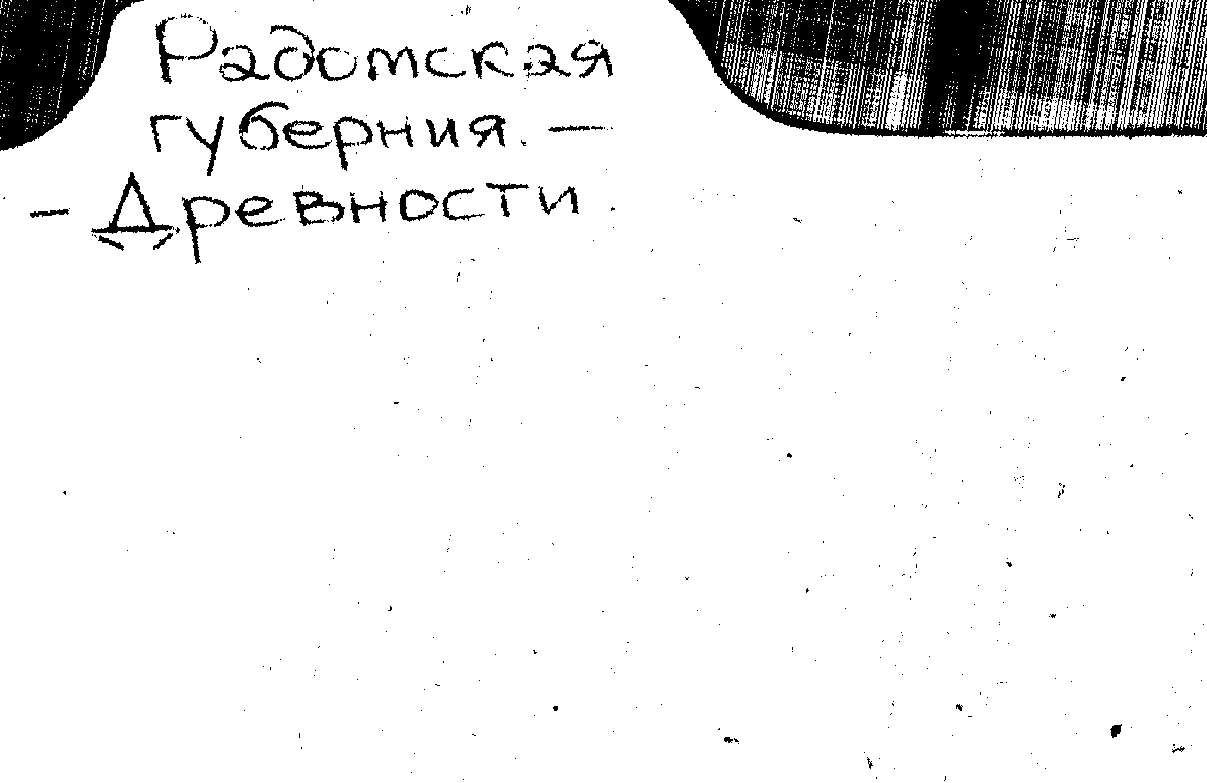 Радомская
губерния. —
- Древности